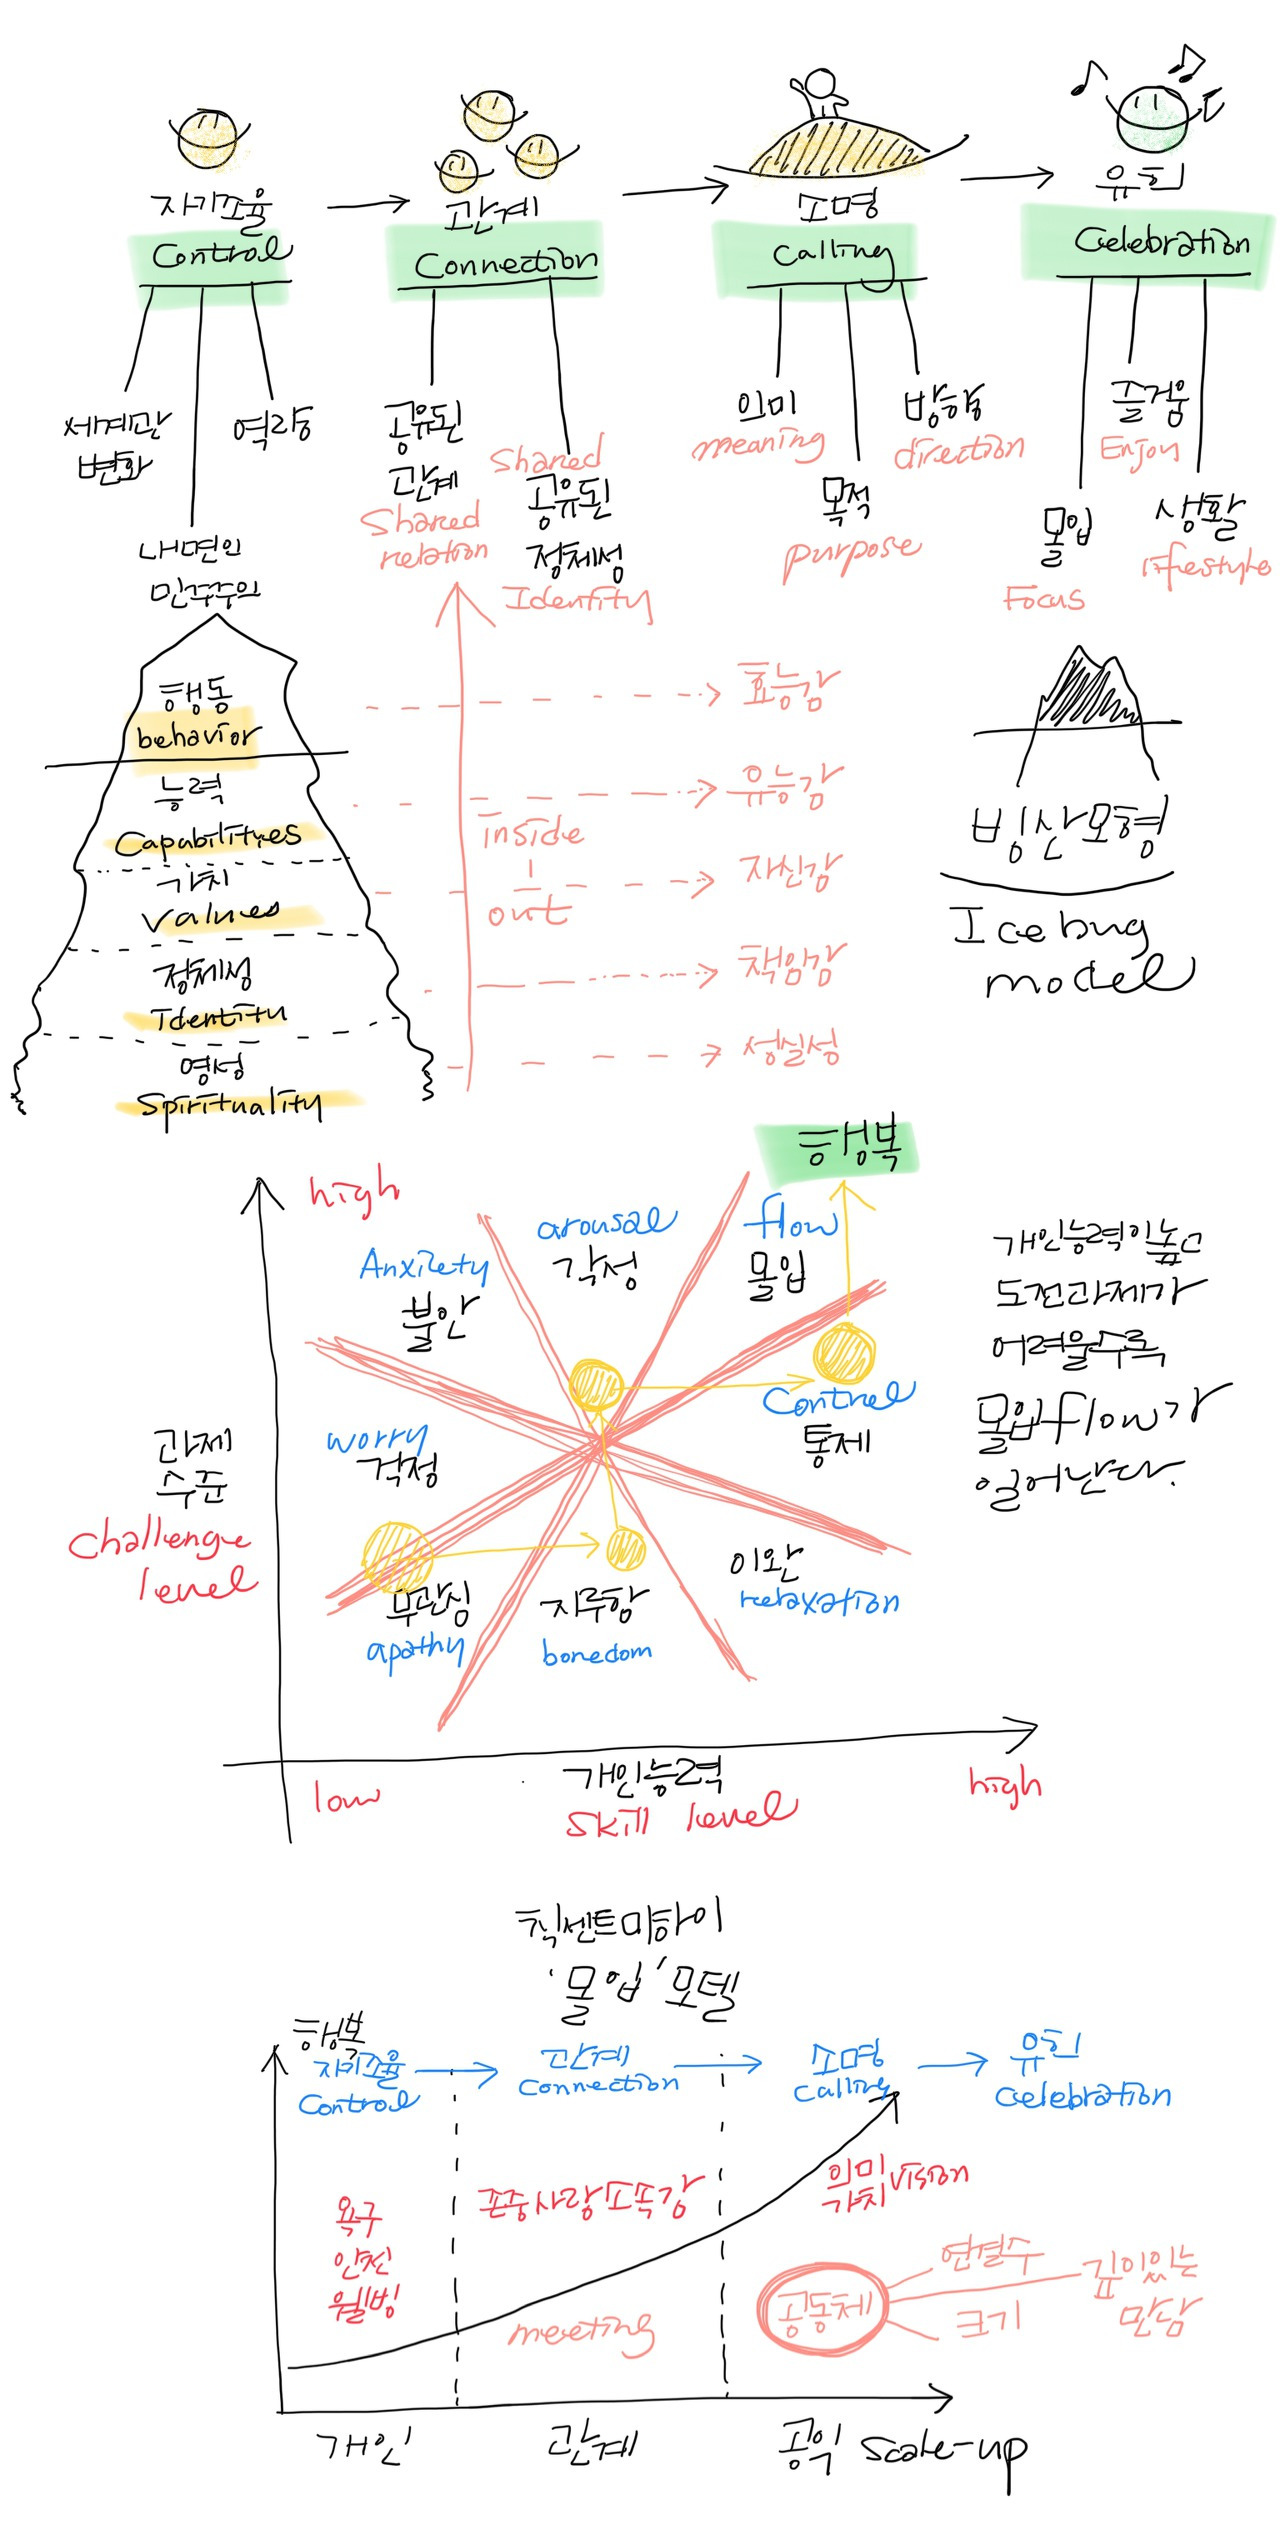 자기조율
Control
관계
Connection
소명
Calling
유희
Celebration
세계관
변화
내면의
민주주의
역량
공유된
관계
Shared
relation
Shared
공유된
정체성
Identity
의미
meaning
목적
purpose
방향
direction
몰입
Focus
즐거움
Enjoy
생활
lifestyle
행동
behavior
능력
Capabilityes
가치
Values
정체성
Identity
영성
Spirituality
inside
out
효능감
유능감
자신감
책임감
성실성
빙산모형
Icebug
model
행복
high
Anxiety
불안
arousal
각성
flow
몰입
worry
걱정
Control
통제
무관심
apathy
지루함
boredom
이완
relaxation
과제
수준
challenge
level
low
개인능력
skill level
high
개인능력이높고
도전과제가
어려울수록
몰입flow가
일어난다.
칙센트미하이
'몰입'모델
행복
자기조율
Control
관계
Connection
소명
Calling
유희
Celebration
욕구
안전
웰빙
존중사랑소속감
의미
가치
vision
meeting
공동체
연결수
크기
깊이있는
만남
개인
관계
공익
scale-up